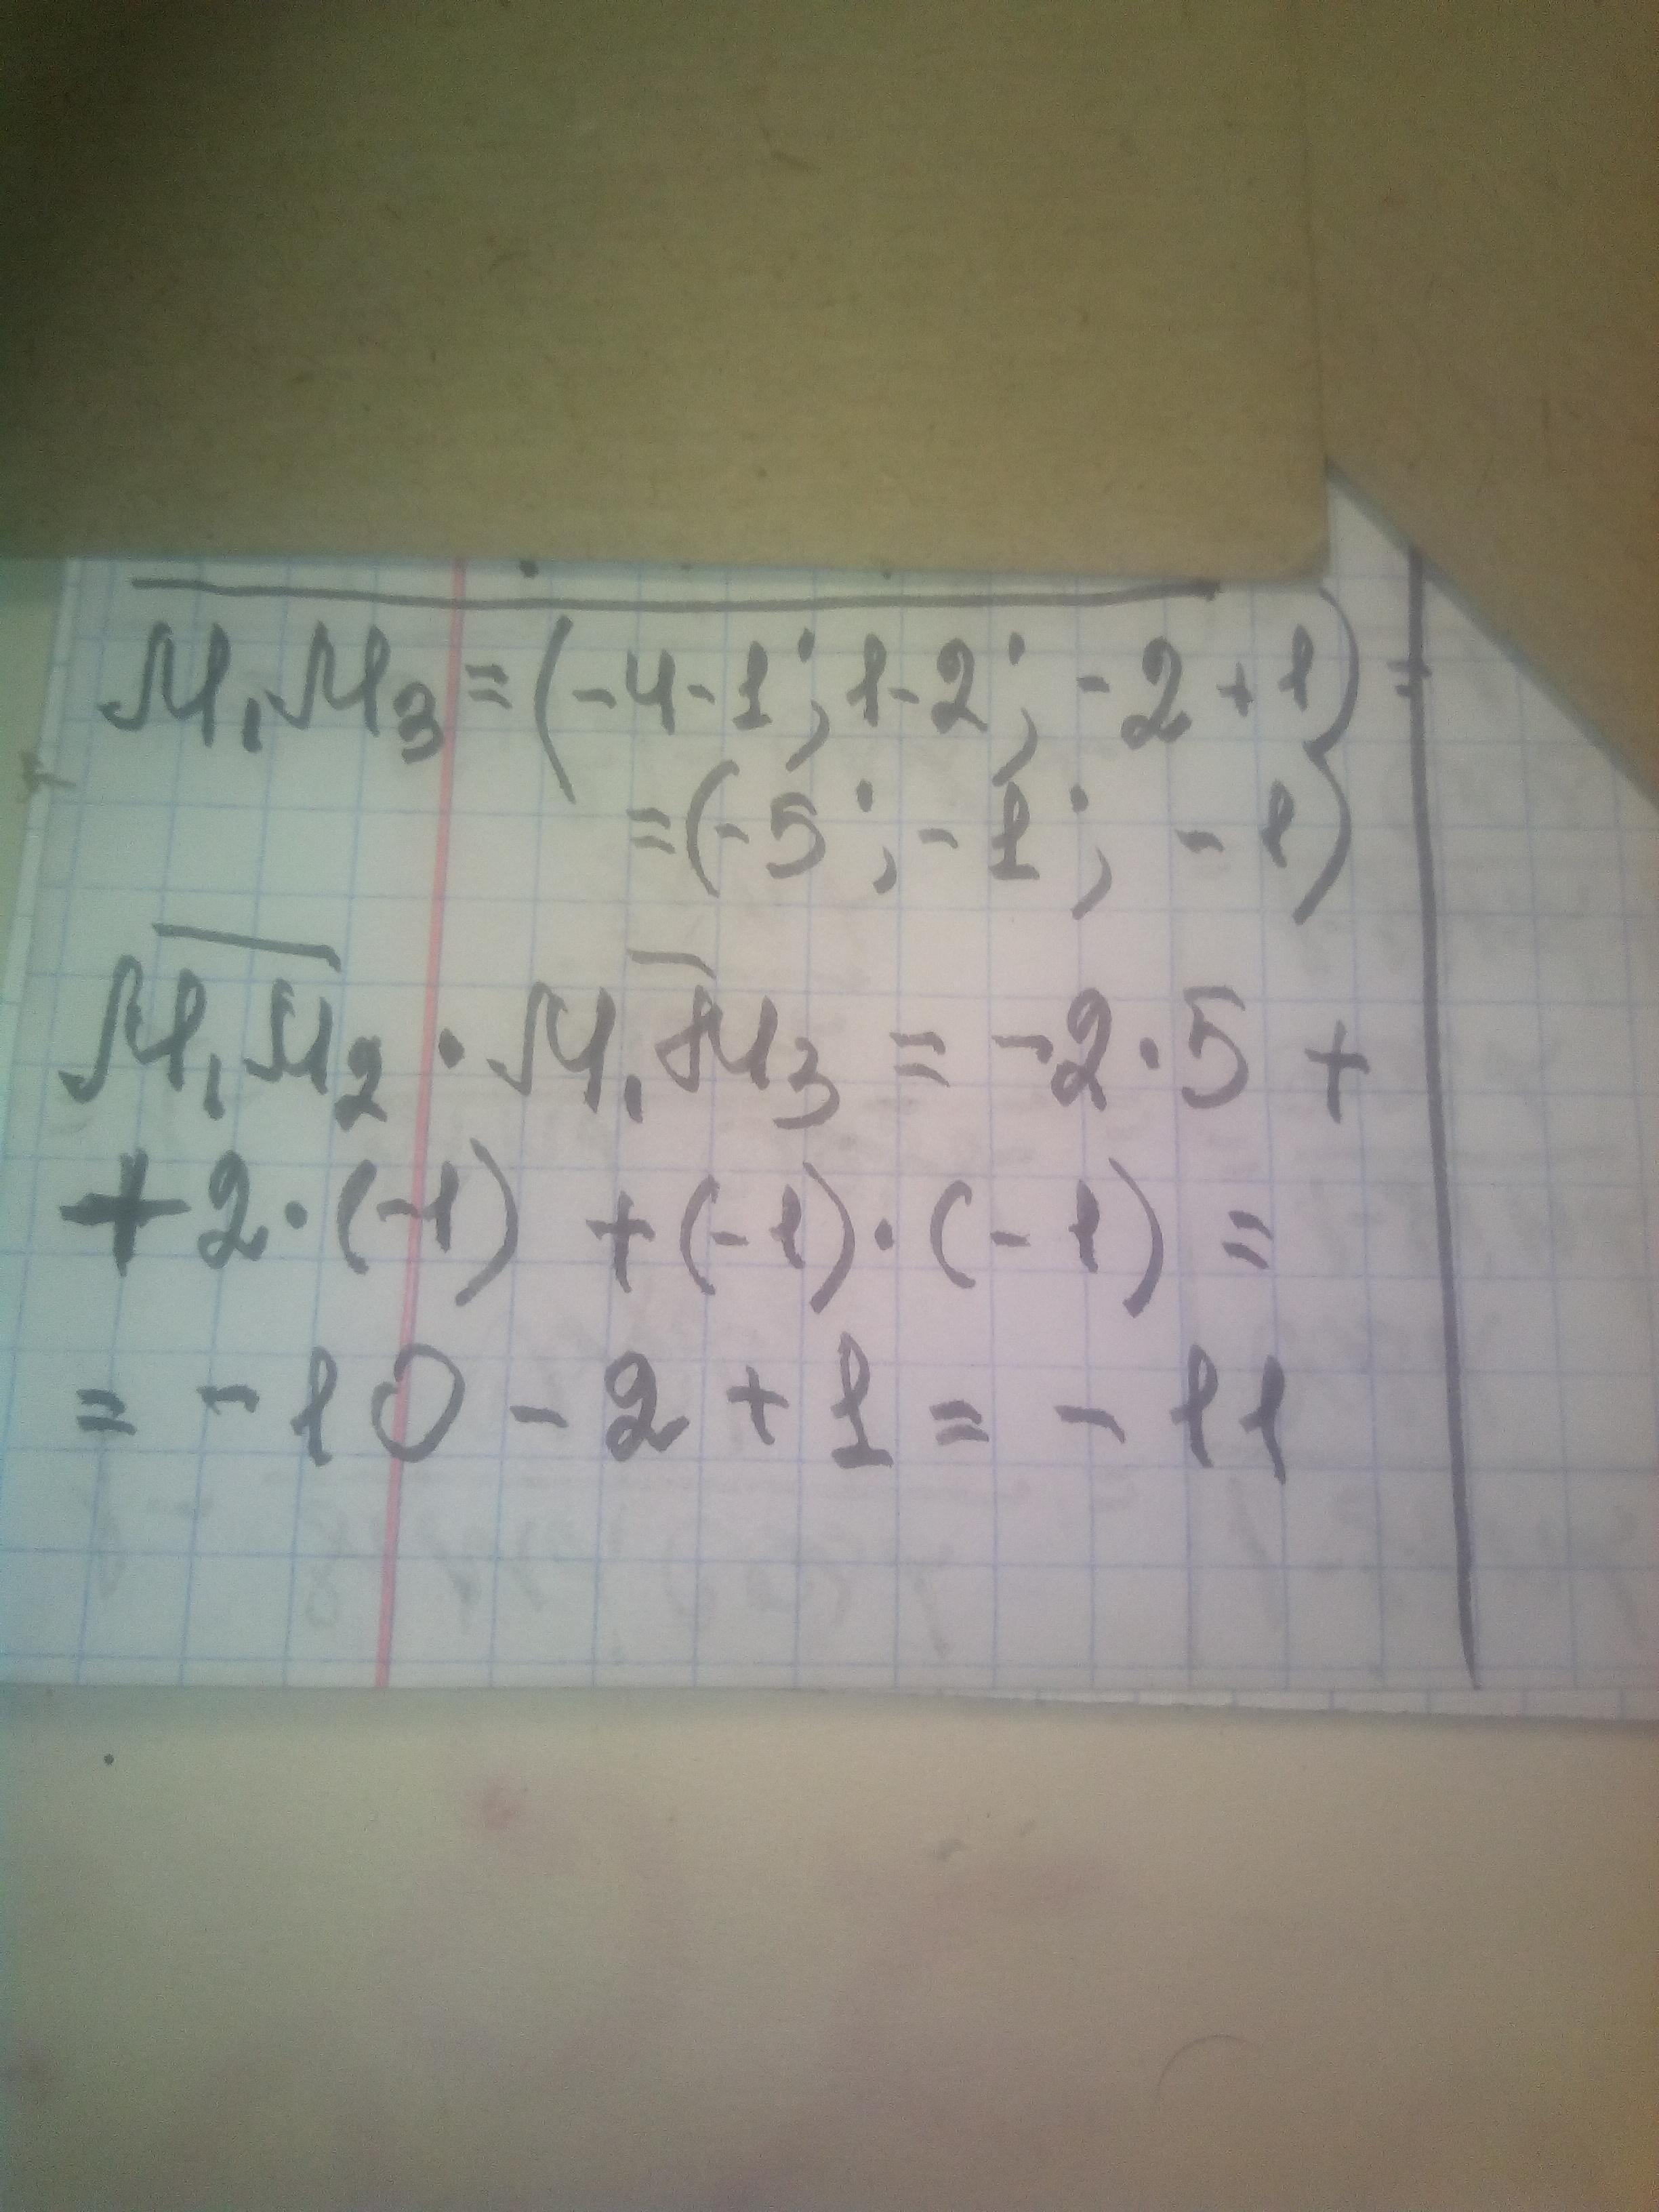 M₁M₃ = (-4-1; 1-2; -2+1) =
= (-5; -1; -1)
M₁M₂ · M₁M₃ = -2·5 +
+ 2·(-1) + (-1)·(-1) =
= -10 - 2 + 1 = -11